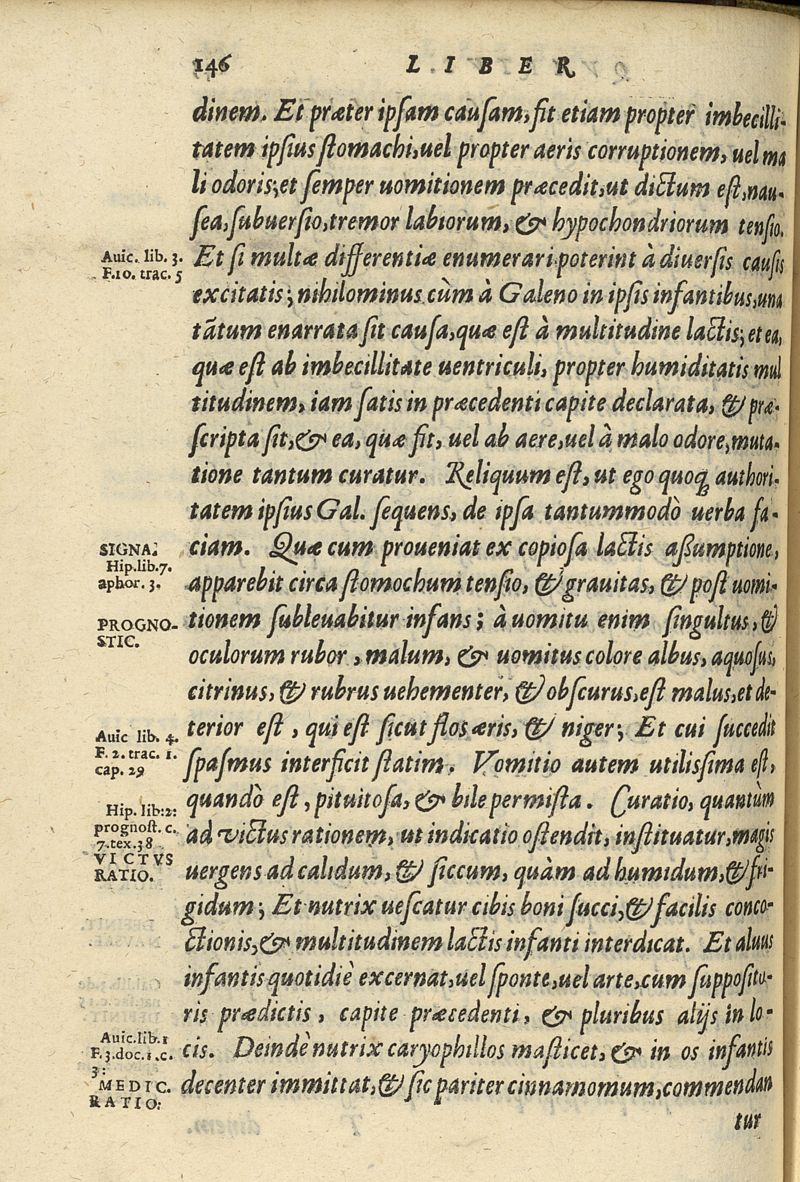 146 LIBER
dinem. Et præter ipsam causam, fit etiam propter imbecilli-
tatem ipsius stomachi, uel propter aeris corruptionem, uel ma
li odoris; et semper uomitionem præcedit, ut dictum est, nau-
sea, subuersio, tremor labiorum, & hypochondriorum tensio.
Auic. lib. 3.
F. 10. trac. 5
Et si multæ differentiæ enumerari poterint à diuersis causis
excitatis; nihilominus cùm à Galeno in ipsis infantibus, una
tãtum enarrata sit causa, quæ est à multitudine lactis; et ea,
quæ est ab imbecillitate uentriculi, propter humiditatis mul
titudinem, iam satis in præcedenti capite declarata, & præ-
scripta sit, & ea, quæ fit, uel ab aere, uel à malo odore, muta-
tione tantum curatur. Reliquum est, ut ego quoq; authori-
tatem ipsius Gal. sequens, de ipsa tantummodò uerba fa-
SIGNA.
Hip. lib. 7.
aphor. 3.
ciam. Quæ cum proueniat ex copiosa lactis aßumptione,
apparebit circa stomochum tensio, & grauitas, & post uomi-
PROGNO-
STIC.
tionem subleuabitur infans; à uomitu enim singultus, &
oculorum rubor, malum, & uomitus colore albus, aquosus,
citrinus, & rubrus uehementer, & obscurus, est malus, et de-
Auic lib. 4.
F. 2. trac. 1.
cap. 29
terior est, qui est sicut flos æris, & niger; Et cui succedit
spasmus interficit statim. Vomitio autem utilissima est,
Hip. lib: 2:
prognost. c.
7. tex. 38
quandò est, pituitosa, & bile permista. Curatio, quantùm
ad victus rationem, ut indicatio ostendit, instituatur, magis
VICTVS
RATIO.
uergens ad calidum, & siccum, quàm ad humidum, & fri-
gidum; Et nutrix uescatur cibis boni succi, & facilis conco-
ctionis, & multitudinem lactis infanti interdicat. Et aluus
infantis quotidiè excernat, uel sponte, uel arte, cum suppositu-
ris prædictis, capite præcedenti, & pluribus alijs in lo-
Auic. lib. 1
F. 3. doc. 1. c.
3:
cis. Deindè nutrix caryophillos masticet, & in os infantis
MEDIC.
RATIO:
decenter immittat, & sic pariter cinnamomum, commendan
tur